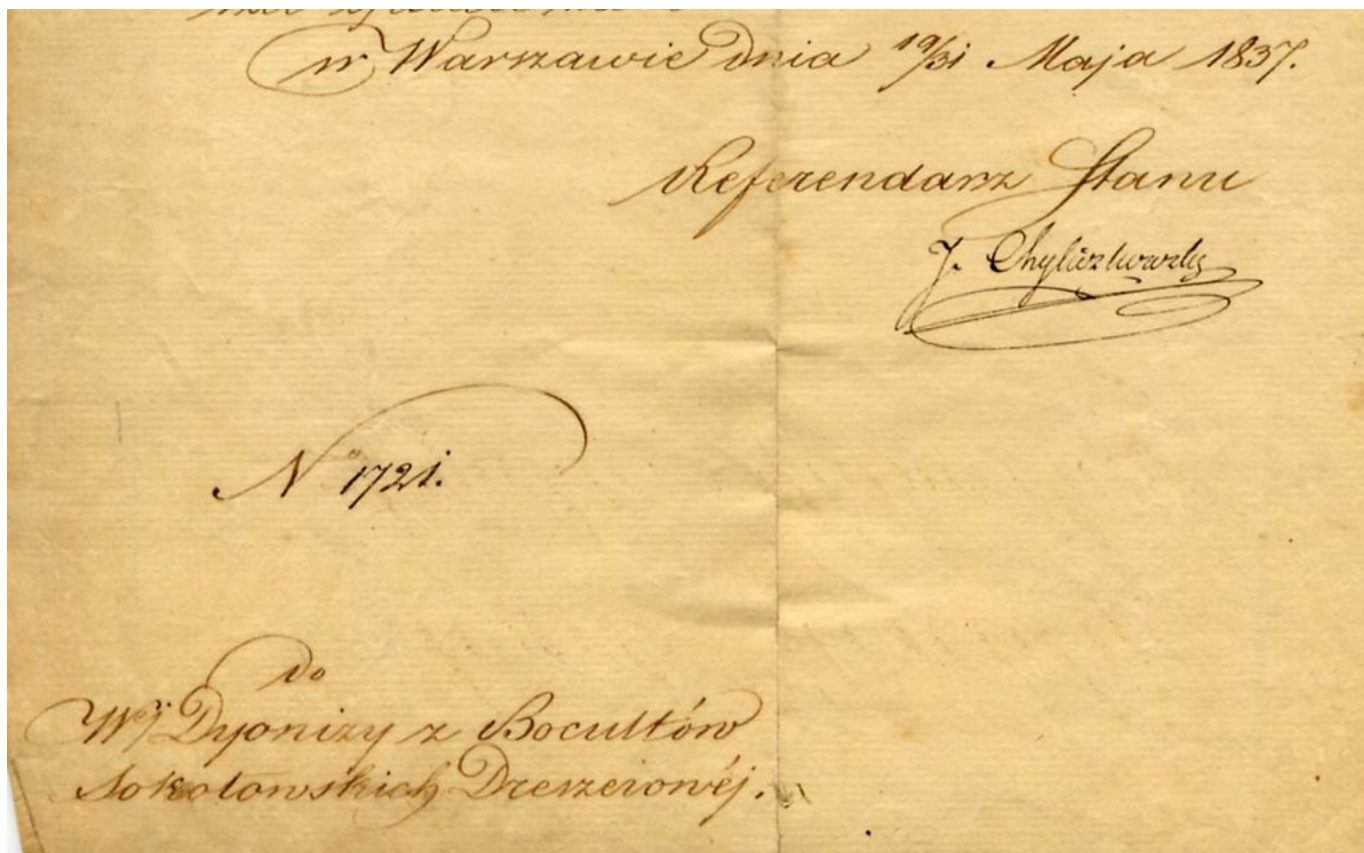 w Warszawie dnia 19/31 Maja 1837.
Referendarz Stanu
J.
No 1721.
Do
Wéj Dyonizy z Bocultów
Sokołowskich Dreszerowéj.